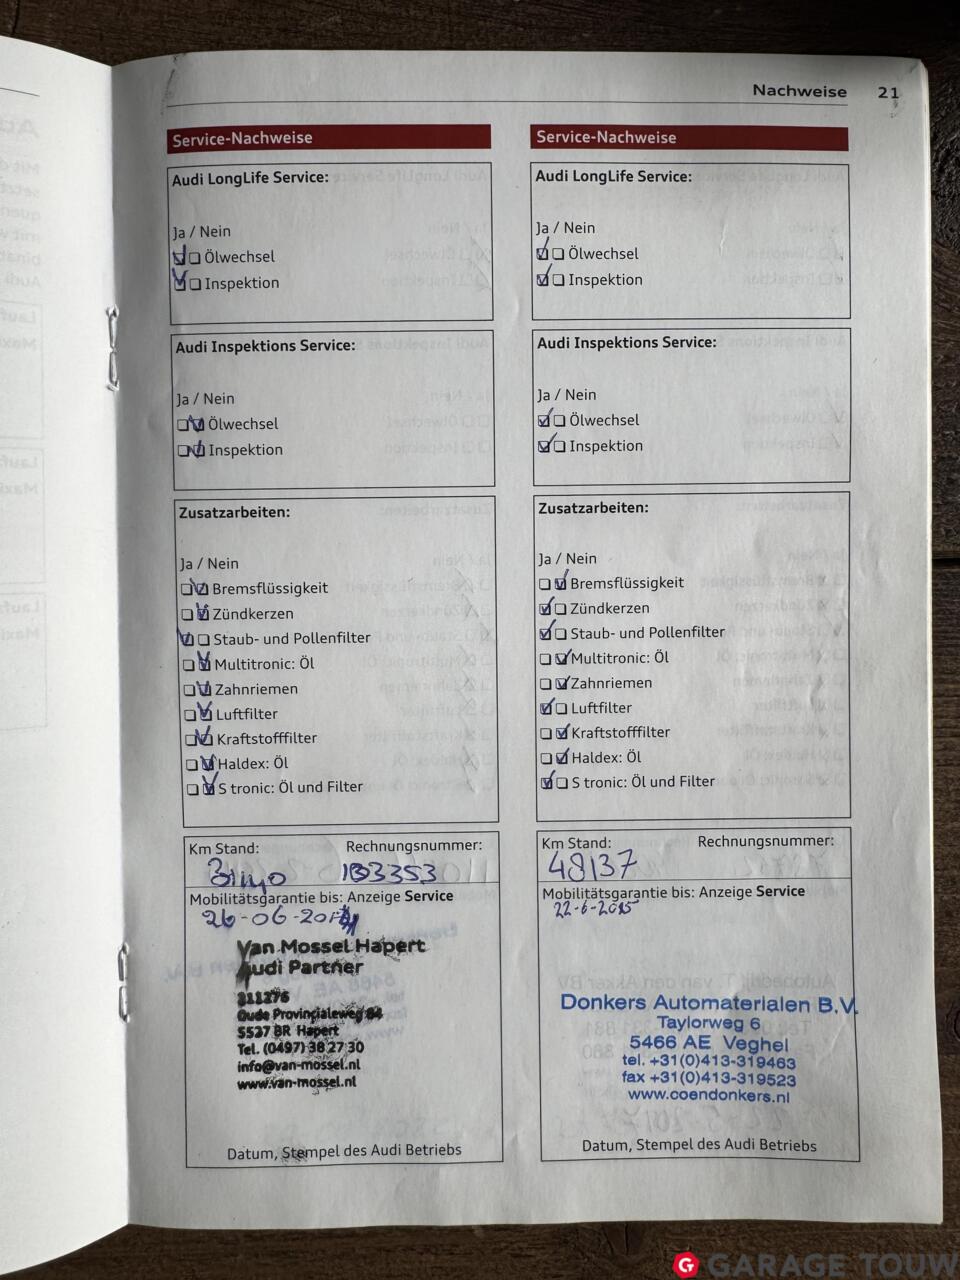 Nachweise 21
Service-Nachweise
Audi LongLife Service:
Ja / Nein
Ölwechsel
Inspektion
Audi Inspektions Service:
Ja / Nein
Ölwechsel
Inspektion
Zusatzarbeiten:
Ja / Nein
Bremsflüssigkeit
Zündkerzen
Staub- und Pollenfilter
Multitronic: Öl
Zahnriemen
Luftfilter
Kraftstofffilter
Haldex: Öl
S tronic: Öl und Filter
Km Stand: Rechnungsnummer:
133353
Mobilitätsgarantie bis: Anzeige Service
Van Mossel Hapert
Audi Partner
211276
Oude Provincialeweg 84
5527 BR Hapert
Tel. (0497) 38 27 30
info@van-mossel.nl
www.van-mossel.nl
Datum, Stempel des Audi Betriebs
Service-Nachweise
Audi LongLife Service:
Ja / Nein
Ölwechsel
Inspektion
Audi Inspektions Service:
Ja / Nein
Ölwechsel
Inspektion
Zusatzarbeiten:
Ja / Nein
Bremsflüssigkeit
Zündkerzen
Staub- und Pollenfilter
Multitronic: Öl
Zahnriemen
Luftfilter
Kraftstofffilter
Haldex: Öl
S tronic: Öl und Filter
Km Stand: Rechnungsnummer:
48137
Mobilitätsgarantie bis: Anzeige Service
22-6-2015
Donkers Automaterialen B.V.
Taylorweg 6
5466 AE Veghel
tel. +31(0)413-319463
fax +31(0)413-319523
www.coendonkers.nl
Datum, Stempel des Audi Betriebs
GARAGE TOUW